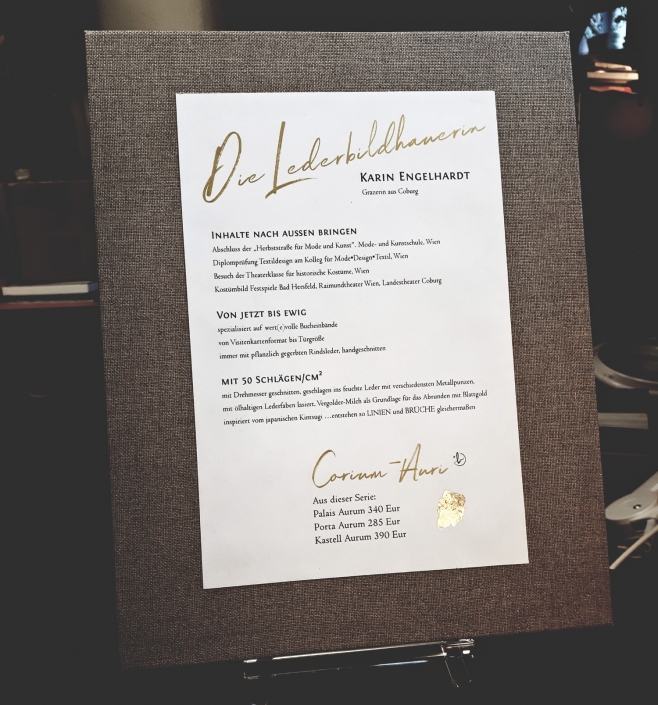 Die Lederbildhauerin
KARIN ENGELHARDT
Grazerin aus Coburg
INHALTE NACH AUSSEN BRINGEN
Abschluss der „Herbststraße für Mode und Kunst“. Mode- und Kunstschule, Wien
Diplomprüfung Textildesign am Kolleg für Mode•Design•Textil, Wien
Besuch der Theaterklasse für historische Kostüme, Wien
Kostümbild Festspiele Bad Hersfeld, Raimundtheater Wien, Landestheater Coburg
VON JETZT BIS EWIG
spezialisiert auf wert(e)volle Bucheinbände
von Visitenkartenformat bis Türgröße
immer mit pflanzlich gegerbten Rindsleder, handgeschnitten
MIT 50 SCHLÄGEN/CM²
mit Drehmesser geschnitten, geschlagen ins feuchte Leder mit verschiedensten Metallpunzen,
mit ölhaltigen Lederfaben lasiert. Vergolder-Milch als Grundlage für das Abrunden mit Blattgold
inspiriert vom japanischen Kintsugi …entstehen so LINIEN und BRÜCHE gleichermaßen
Corium-Auri
Aus dieser Serie:
Palais Aurum 340 Eur
Porta Aurum 285 Eur
Kastell Aurum 390 Eur